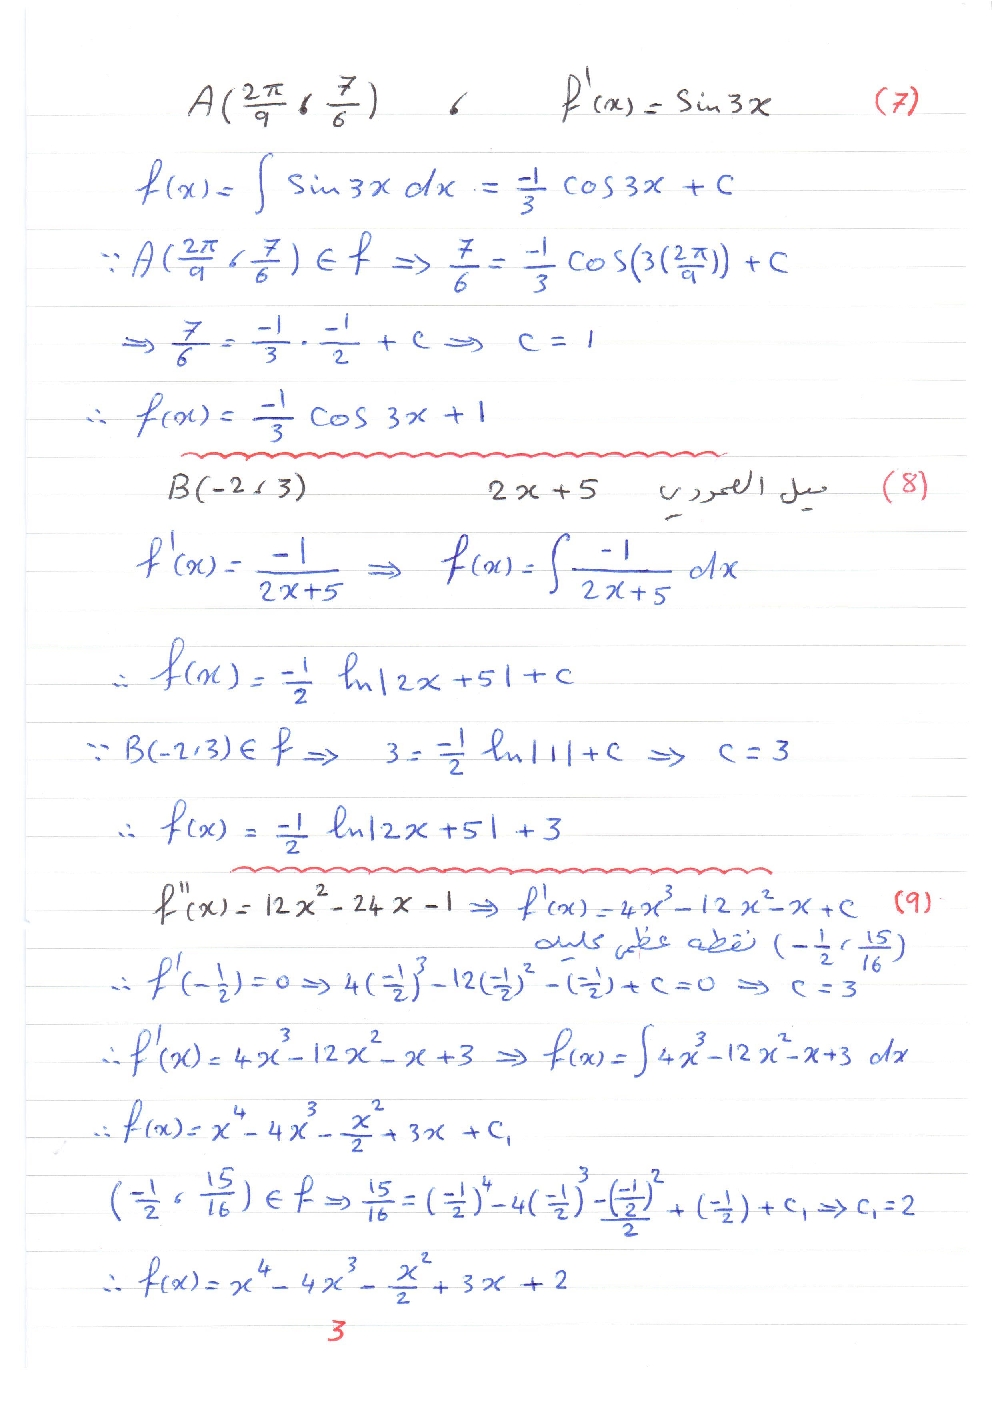 (7) f'(x) = Sin 3x ، A(2π/9 ، 7/6)
f(x) = ∫ Sin 3x dx = -1/3 cos 3x + C
∵ A(2π/9 ، 7/6) ∈ f ⇒ 7/6 = -1/3 Cos(3(2π/9)) + C
⇒ 7/6 = -1/3 . -1/2 + C ⇒ C = 1
∴ f(x) = -1/3 Cos 3x + 1
(8) ميل العمودي 2x + 5 B(-2 ، 3)
f'(x) = -1/(2x+5) ⇒ f(x) = ∫ -1/(2x+5) dx
∴ f(x) = -1/2 ln|2x + 5| + C
∵ B(-2 ، 3) ∈ f ⇒ 3 = -1/2 ln|1| + C ⇒ C = 3
∴ f(x) = -1/2 ln|2x + 5| + 3
(9) f''(x) = 12x² - 24x - 1 ⇒ f'(x) = 4x³ - 12x² - x + C
(-1/2 ، 15/16) نقطة عظمى محلية
∴ f'(-1/2) = 0 ⇒ 4(-1/2)³ - 12(-1/2)² - (-1/2) + C = 0 ⇒ C = 3
∴ f'(x) = 4x³ - 12x² - x + 3 ⇒ f(x) = ∫ 4x³ - 12x² - x + 3 dx
∴ f(x) = x⁴ - 4x³ - x²/2 + 3x + C₁
(-1/2 ، 15/16) ∈ f ⇒ 15/16 = (-1/2)⁴ - 4(-1/2)³ - (-1/2)²/2 + (-1/2) + C₁ ⇒ C₁ = 2
∴ f(x) = x⁴ - 4x³ - x²/2 + 3x + 2
3